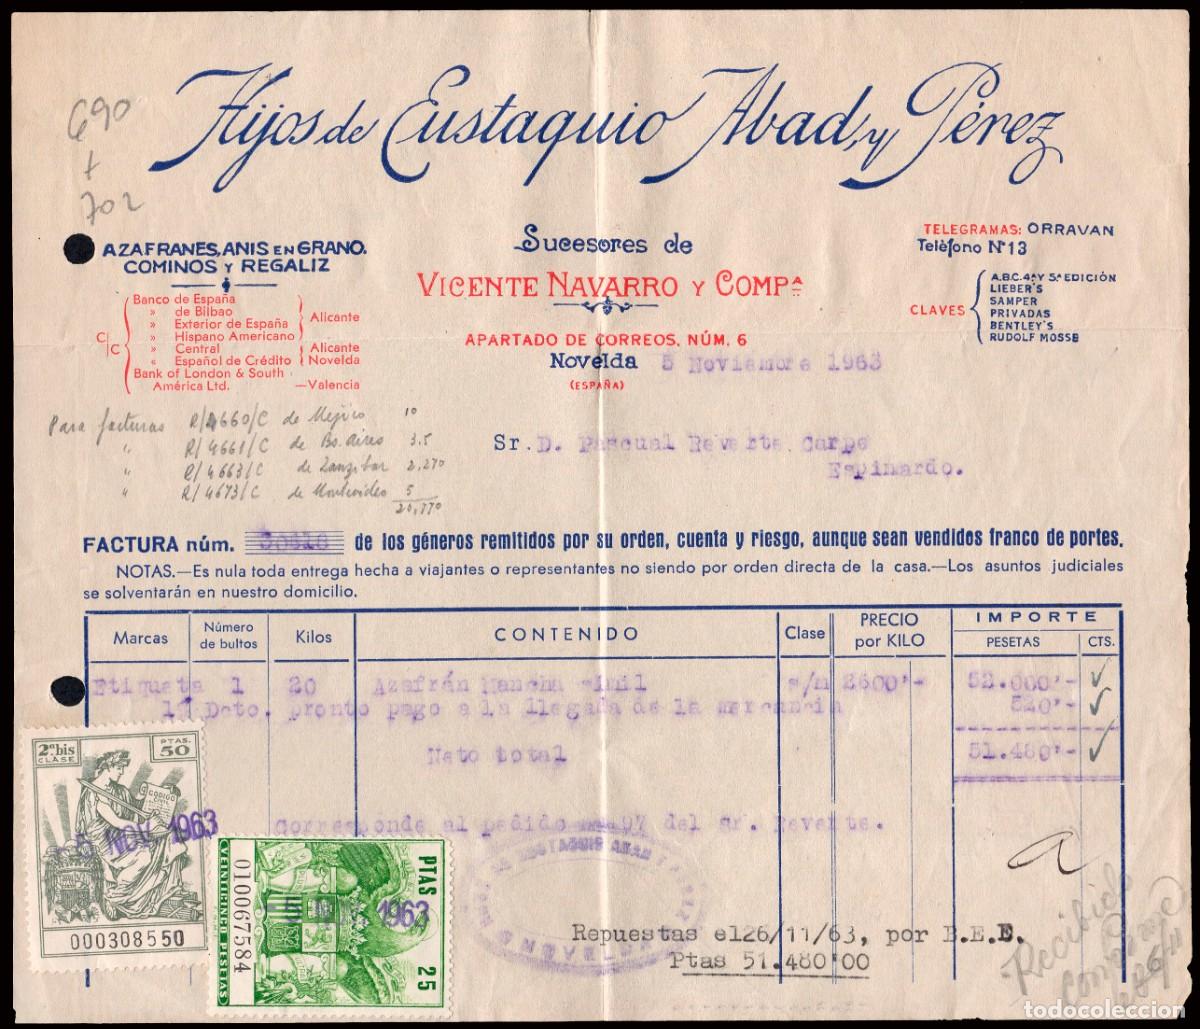 Hijos de Eustaquio Abad, y Pérez
690
+
702
AZAFRANES, ANIS EN GRANO.
COMINOS Y REGALIZ
C/C
Banco de España
» de Bilbao
» Exterior de España
» Hispano Americano
Alicante
» Central
Alicante
» Español de Crédito
Novelda
Bank of London & South
América Ltd.
—Valencia
Sucesores de
VICENTE NAVARRO Y COMPª
APARTADO DE CORREOS, NÚM. 6
Novelda 5 Noviembre 1963
(ESPAÑA)
TELEGRAMAS: ORRAVAN
Teléfono Nº 13
CLAVES
A.B.C. 4ª Y 5ª EDICIÓN
LIEBER'S
SAMPER
PRIVADAS
BENTLEY'S
RUDOLF MOSSE
Para facturas R/4660/C de Mejico 10
" R/4661/C de Bs. Aires 3.5
" R/4663/C de Zanzibar 2,270
" R/4673/C de Montevideo 5
20,770
Sr. D. Pascual Reverte Carpe
Espinardo.
FACTURA núm. de los géneros remitidos por su orden, cuenta y riesgo, aunque sean vendidos franco de portes.
NOTAS.—Es nula toda entrega hecha a viajantes o representantes no siendo por orden directa de la casa.—Los asuntos judiciales
se solventarán en nuestro domicilio.
Marcas Número de bultos Kilos CONTENIDO Clase PRECIO por KILO IMPORTE PESETAS CTS.
Etiqueta 1 20 Azafrán Mancha simil s/m 2600'- 52.000'-
1% Dcto. pronto pago a la llegada de la mercancia 520'-
Neto total 51.480'-
Corresponde al pedido 97 del sr. Reverte.
2ª bis
CLASE
PTAS.
50
CODIGO
CIVIL
-5 NOV. 1963
000308550
PTAS
25
010067584
VEINTICINCO PESETAS
1963
Repuestas el 26/11/63, por B.E.E.
Ptas 51.480'00
Recibido
26/11
todocoleccion.net